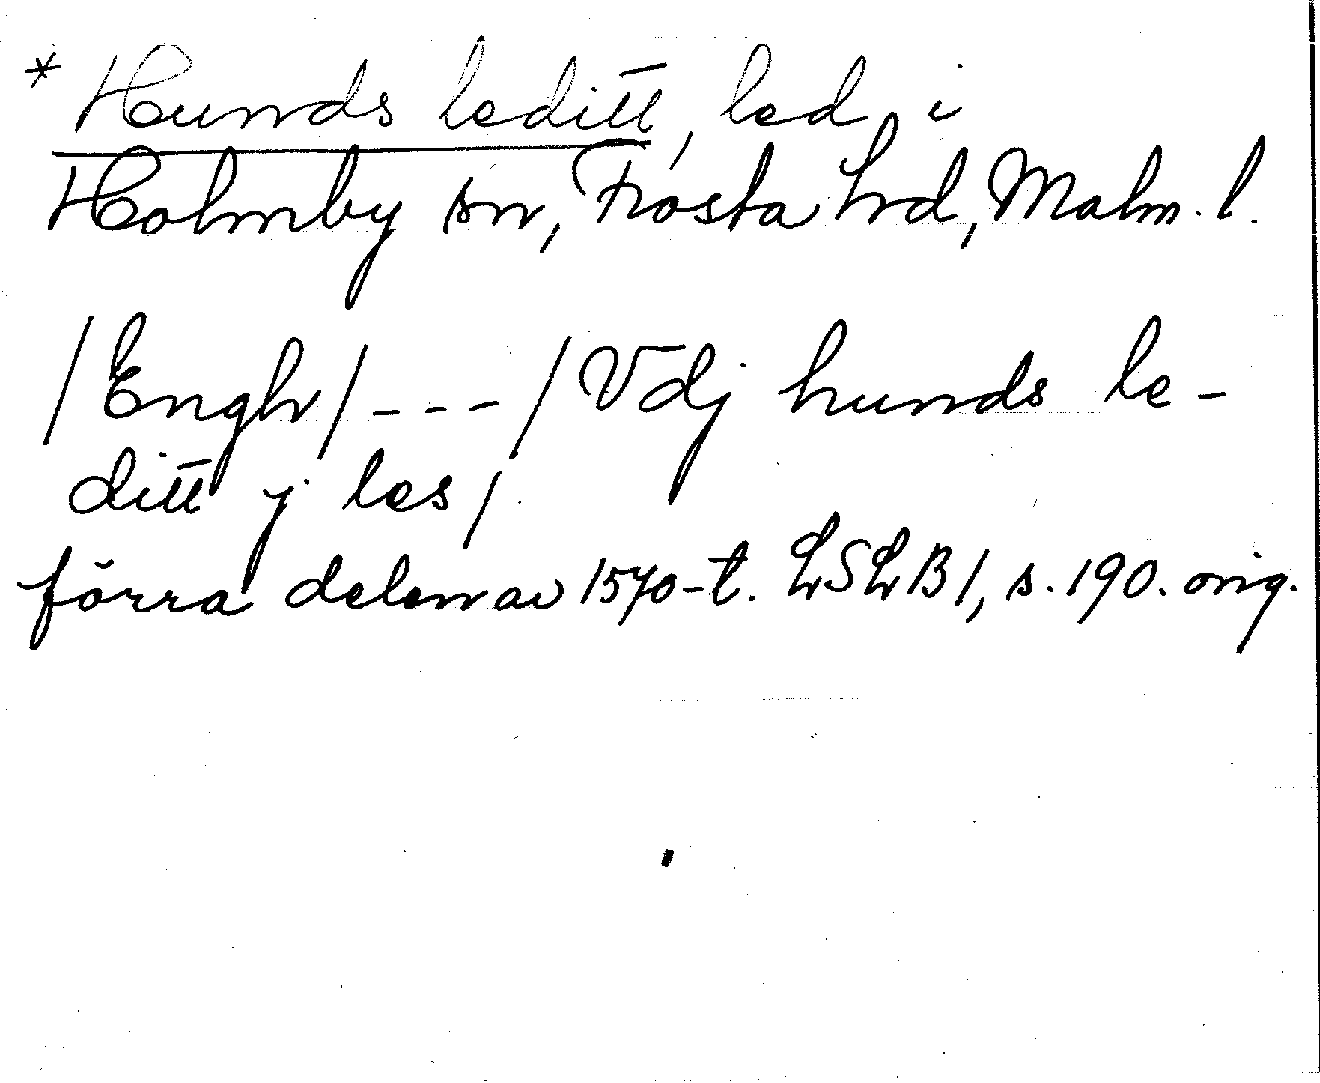 * Hunds leditt, led i
Holmby sn, Frosta hrd, Malm. l.
/Engh/ - - - / Vdj hunds le-
ditt j les/.
förra delen av 1570-t. LSLB 1, s. 190. orig.